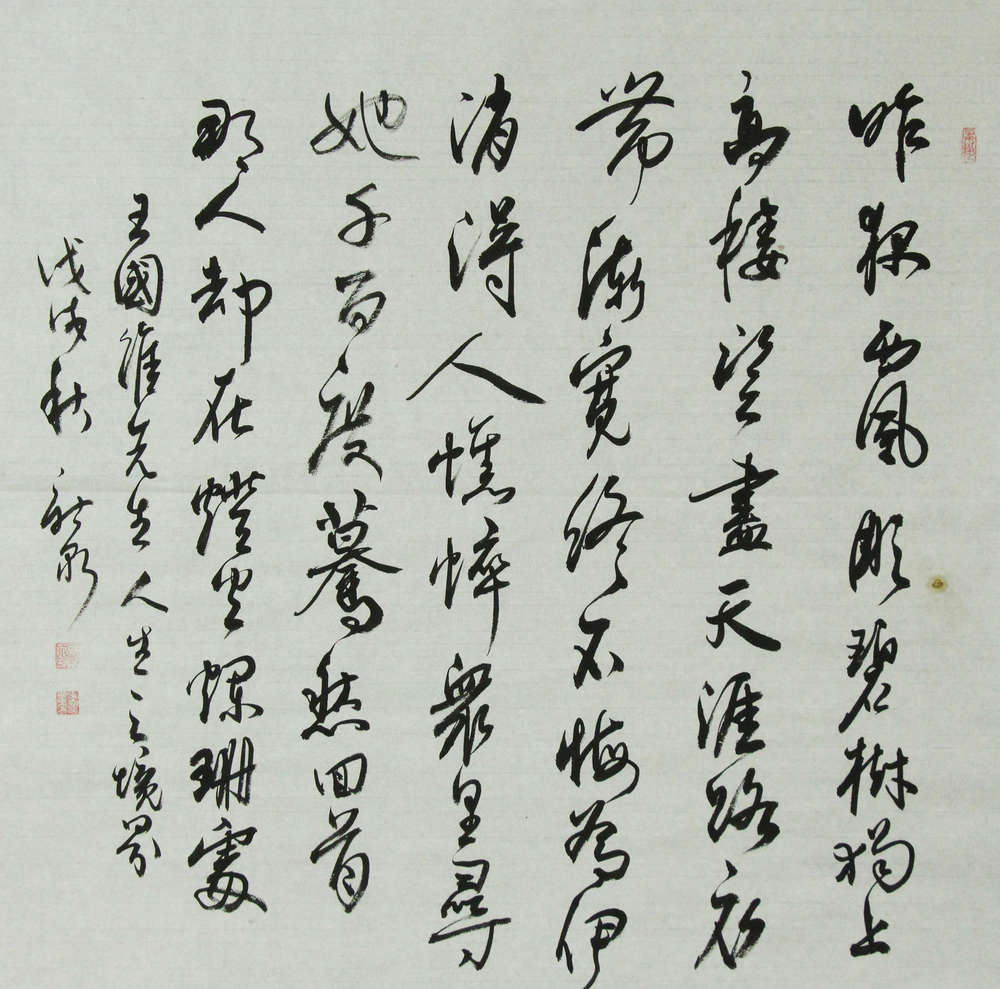 昨夜西風彫碧樹獨上
高樓望盡天涯路衣
帶漸寬終不悔為伊
消得人憔悴眾里尋
她千百度驀然回首
那人却在燈火珊處
王國維先生人生之境界
戊戌秋